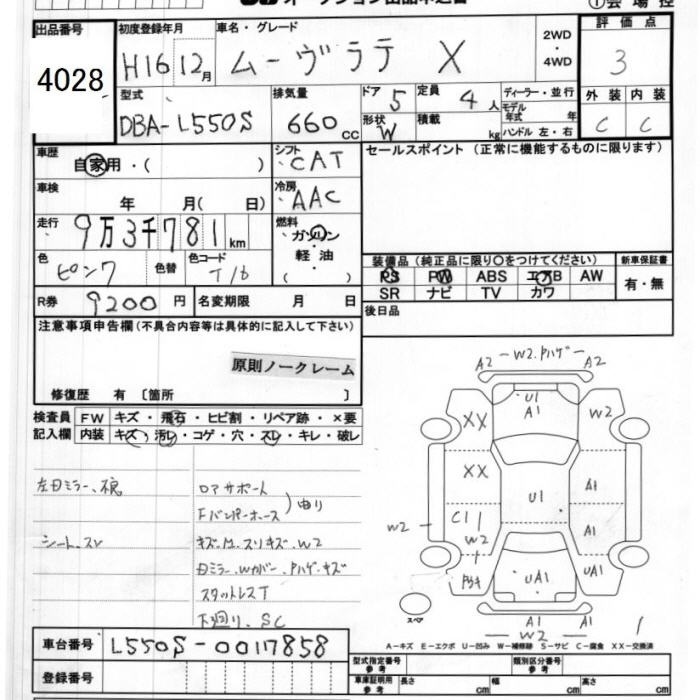 出品番号 4028
初度登録年月 H16 12月
車名・グレード ムーヴラテ X
2WD・4WD
評価点 3
型式 DBA-L550S
排気量 660cc
ドア 5 定員 4人
形状 W 積載 kg
ディーラー・並行
モデル年式 年
ハンドル 左・右
外装 内装
C C
車歴 自家用・( )
シフト CAT
セールスポイント (正常に機能するものに限ります)
車検 年 月( 日)
冷房 AAC
走行 9万3千781km
燃料 ガソリン・軽油・( )
色 ピンク 色替 色コード T16
装備品(純正品に限り○をつけてください) 新車保証書
PS PW ABS エアB AW
SR ナビ TV カワ
有・無
R券 9200円 名変期限 月 日
後日品
注意事項申告欄(不具合内容等は具体的に記入して下さい)
原則ノークレーム
修復歴 有 〔箇所 〕
検査員記入欄 FW キズ・飛石・ヒビ割・リペア跡・×要
内装 キズ・汚レ・コゲ・穴・スレ・キレ・破レ
ロアサポート
Fバンパーホース
シート、スレ
スタットレスT
下廻り、SC
A2 W2.Pハゲ A2
U1
A1
XX W2
XX
U1 A1
C1
W2 W2 A1
UA1 UA1
スペア
A1 A1
W2
A-キズ E-エクボ U-凹み W-補修跡 S-サビ C-腐食 XX-交換済
車台番号 L550S-0017858
登録番号
型式指定番号 参考 類別区分番号 参考
車庫証明用 参考 長さ cm 幅 cm 高さ cm